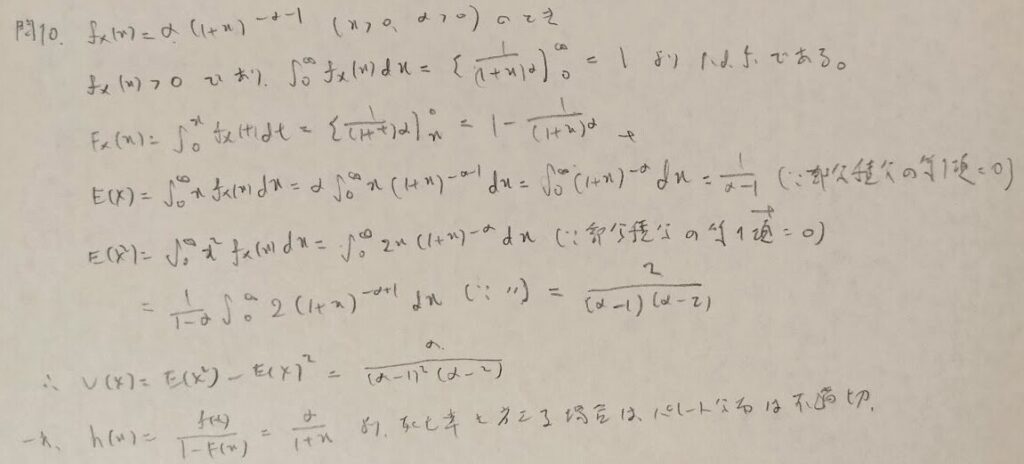 問10. fx(x) = α(1+x)^{-α-1} (x>0, α>0) のとき
fx(x)>0 であり、∫_0^∞ fx(x)dx = {1/(1+x)^α}^∞_0 = 1 より p.d.f. である。
Fx(x) = ∫_0^x fx(t)dt = {1/(1+t)^α}^0_x = 1 - 1/(1+x)^α
E(X) = ∫_0^∞ x fx(x)dx = α∫_0^∞ x(1+x)^{-α-1}dx = ∫_0^∞ (1+x)^{-α}dx = 1/(α-1) (∵部分積分の第1項=0)
E(X²) = ∫_0^∞ x² fx(x)dx = ∫_0^∞ 2x(1+x)^{-α}dx (∵部分積分の第1項=0)
= 1/(1-α) ∫_0^∞ 2(1+x)^{-α+1}dx (∵ 〃) = 2/((α-1)(α-2))
∴ V(X) = E(X²) - E(X)² = α/((α-1)²(α-2))
一方、h(x) = f(x)/(1-F(x)) = α/(1+x) より、死亡率と考える場合は、パレート分布は不適切。